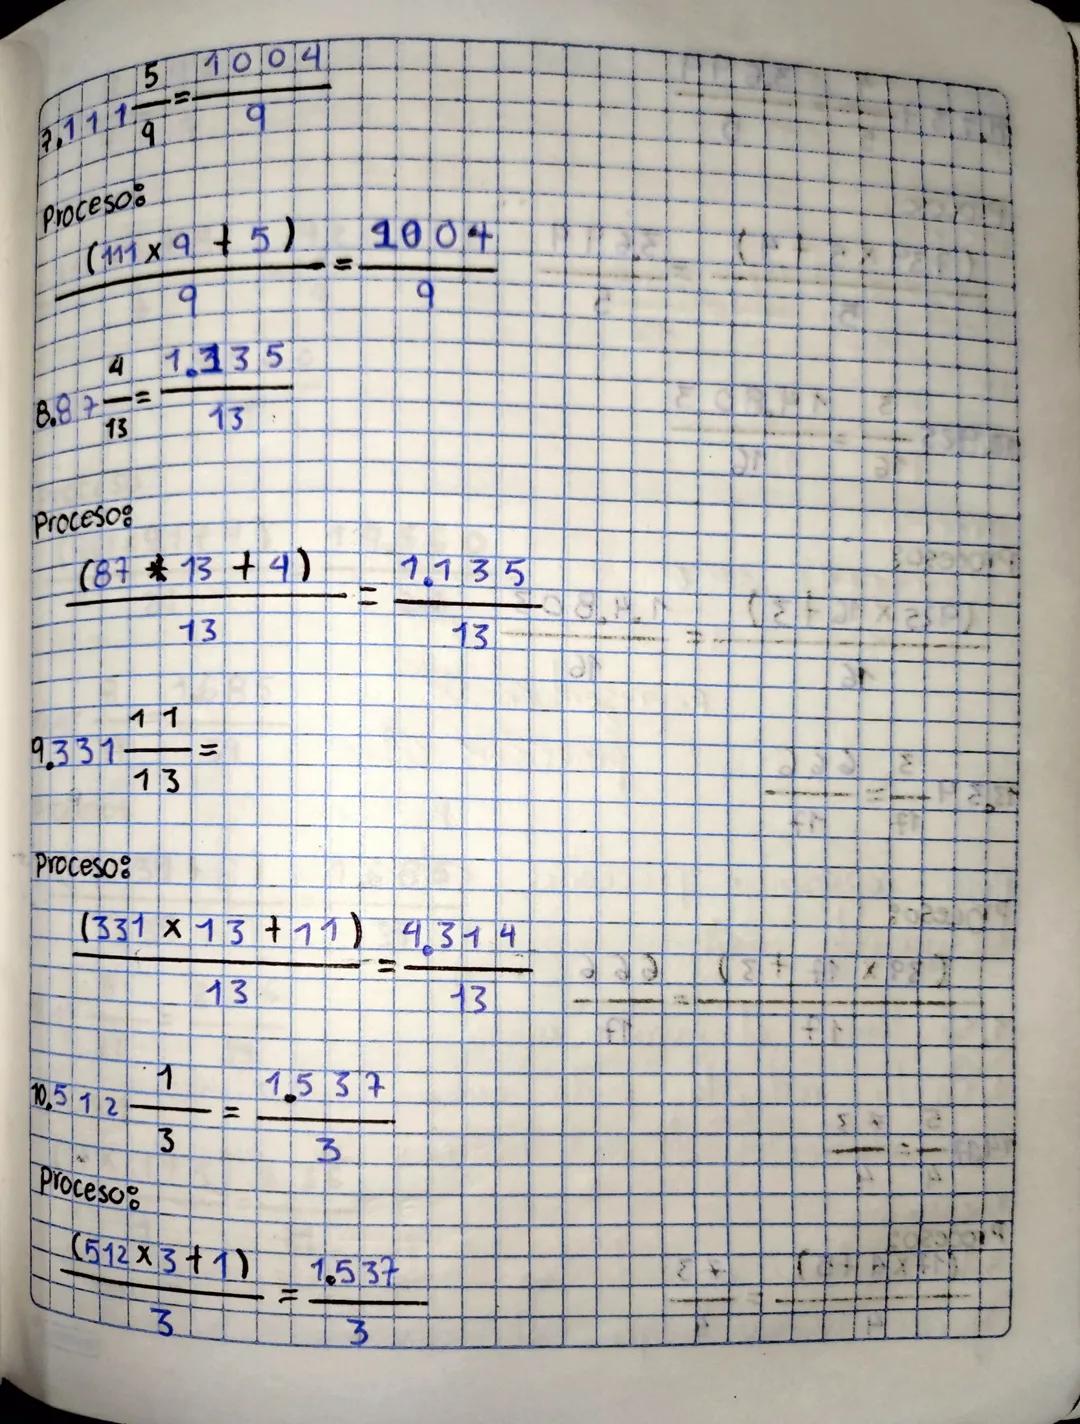 7. 111 5/9 = 1004/9
Proceso:
(111 x 9 + 5)/9 = 1004/9
8. 87 4/13 = 1.135/13
Proceso:
(87 * 13 + 4)/13 = 1.135/13
9. 331 11/13 =
Proceso:
(331 x 13 + 11)/13 = 4.314/13
10. 512 1/3 = 1.537/3
Proceso:
(512 x 3 + 1)/3 = 1.537/3